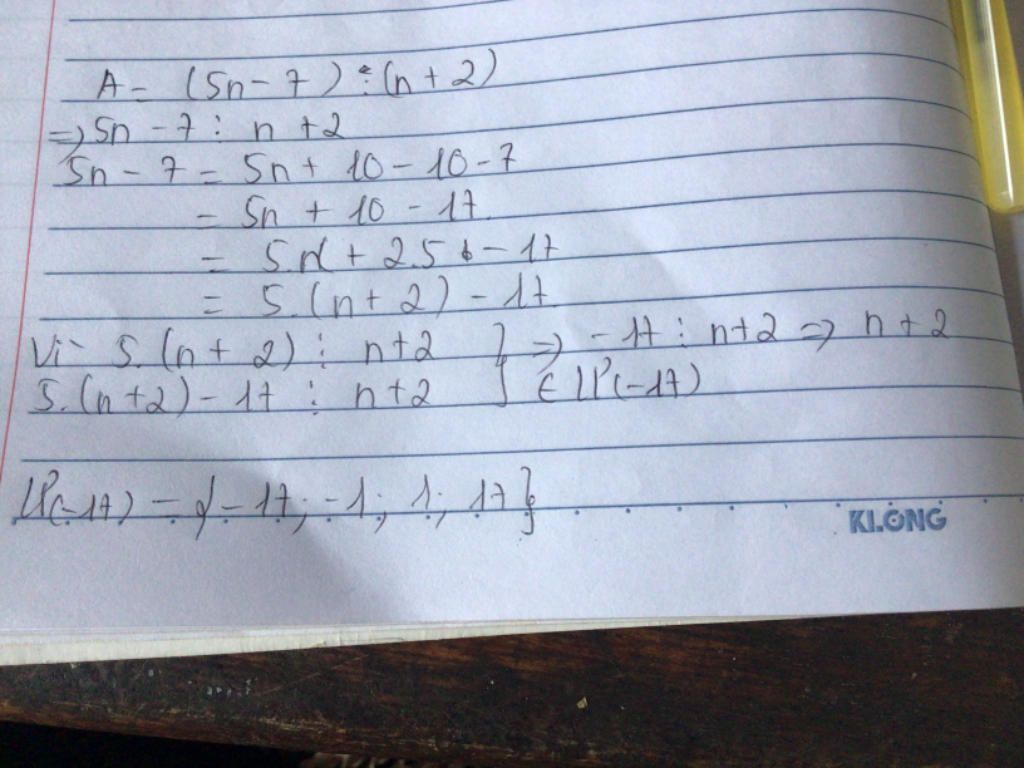 A = (5n - 7) ⋮ (n + 2)
=> 5n - 7 ⋮ n + 2
5n - 7 = 5n + 10 - 10 - 7
= 5n + 10 - 17
= 5.n + 2.5 - 17
= 5.(n + 2) - 17
Vì 5.(n + 2) ⋮ n + 2 } => -17 ⋮ n + 2 => n + 2
5.(n + 2) - 17 ⋮ n + 2 } ∈ Ư(-17)
Ư(-17) = {-17; -1; 1; 17}
KLONG